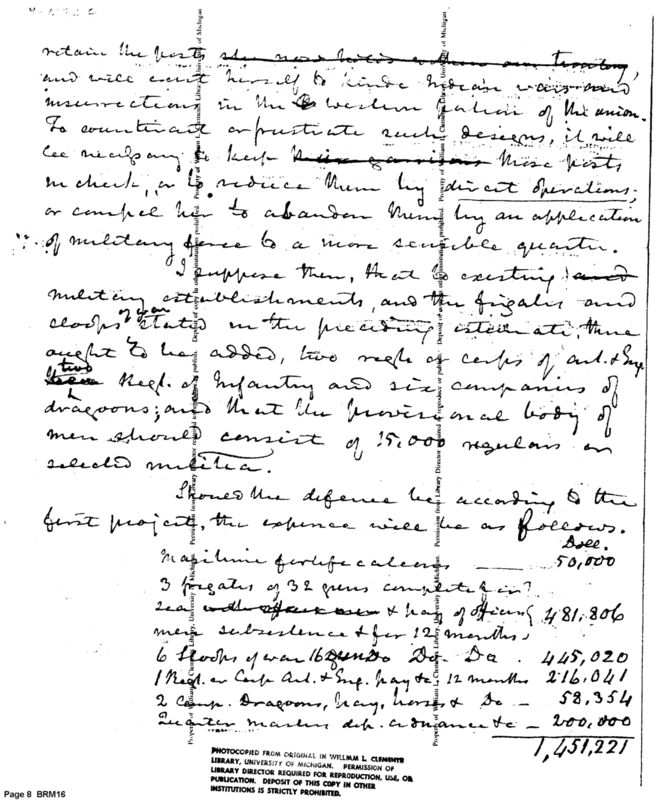 retain the posts she now holds within our territory,
and will exert herself to kindle Indian wars and
insurrections in the western portion of the union.
To counteract or frustrate such designs, it will
be necessary to keep these posts
in check, or to reduce them by direct operations;
or compel her to abandon them by an application
of military force to a more sensible quarter.
I suppose then, that to existing
military establishments, and the frigates and
sloops of war stated in the preceding estimate, there
ought to be added, two regts or corps of art. & Eng.
two Regt. of Infantry and six companies of
dragoons; and that the provisional body of
men should consist of 15,000 regulars or
selected militia.
Should the defence be according to the
first project, the expence will be as follows.
Doll.
Maritime fortifications 50,000
3 frigates of 32 guns complete for
sea & pay of officers 481,806
men subsistence & for 12 months
6 Sloops of war 16 guns Do Do 445,020
1 Regt. or Corps Art. & Eng. pay &c. 12 months 216,041
2 Comp. Dragoons, pay, horses & Do 58,354
Quarter masters dep. ordnance &c 200,000
1,451,221
Property of William L. Clements Library, University of Michigan
PHOTOCOPIED FROM ORIGINAL IN WILLIAM L. CLEMENTS
LIBRARY, UNIVERSITY OF MICHIGAN. PERMISSION OF
LIBRARY DIRECTOR REQUIRED FOR REPRODUCTION, USE, OR
PUBLICATION. DEPOSIT OF THIS COPY IN OTHER
INSTITUTIONS IS STRICTLY PROHIBITED.
Page 8 BRM16